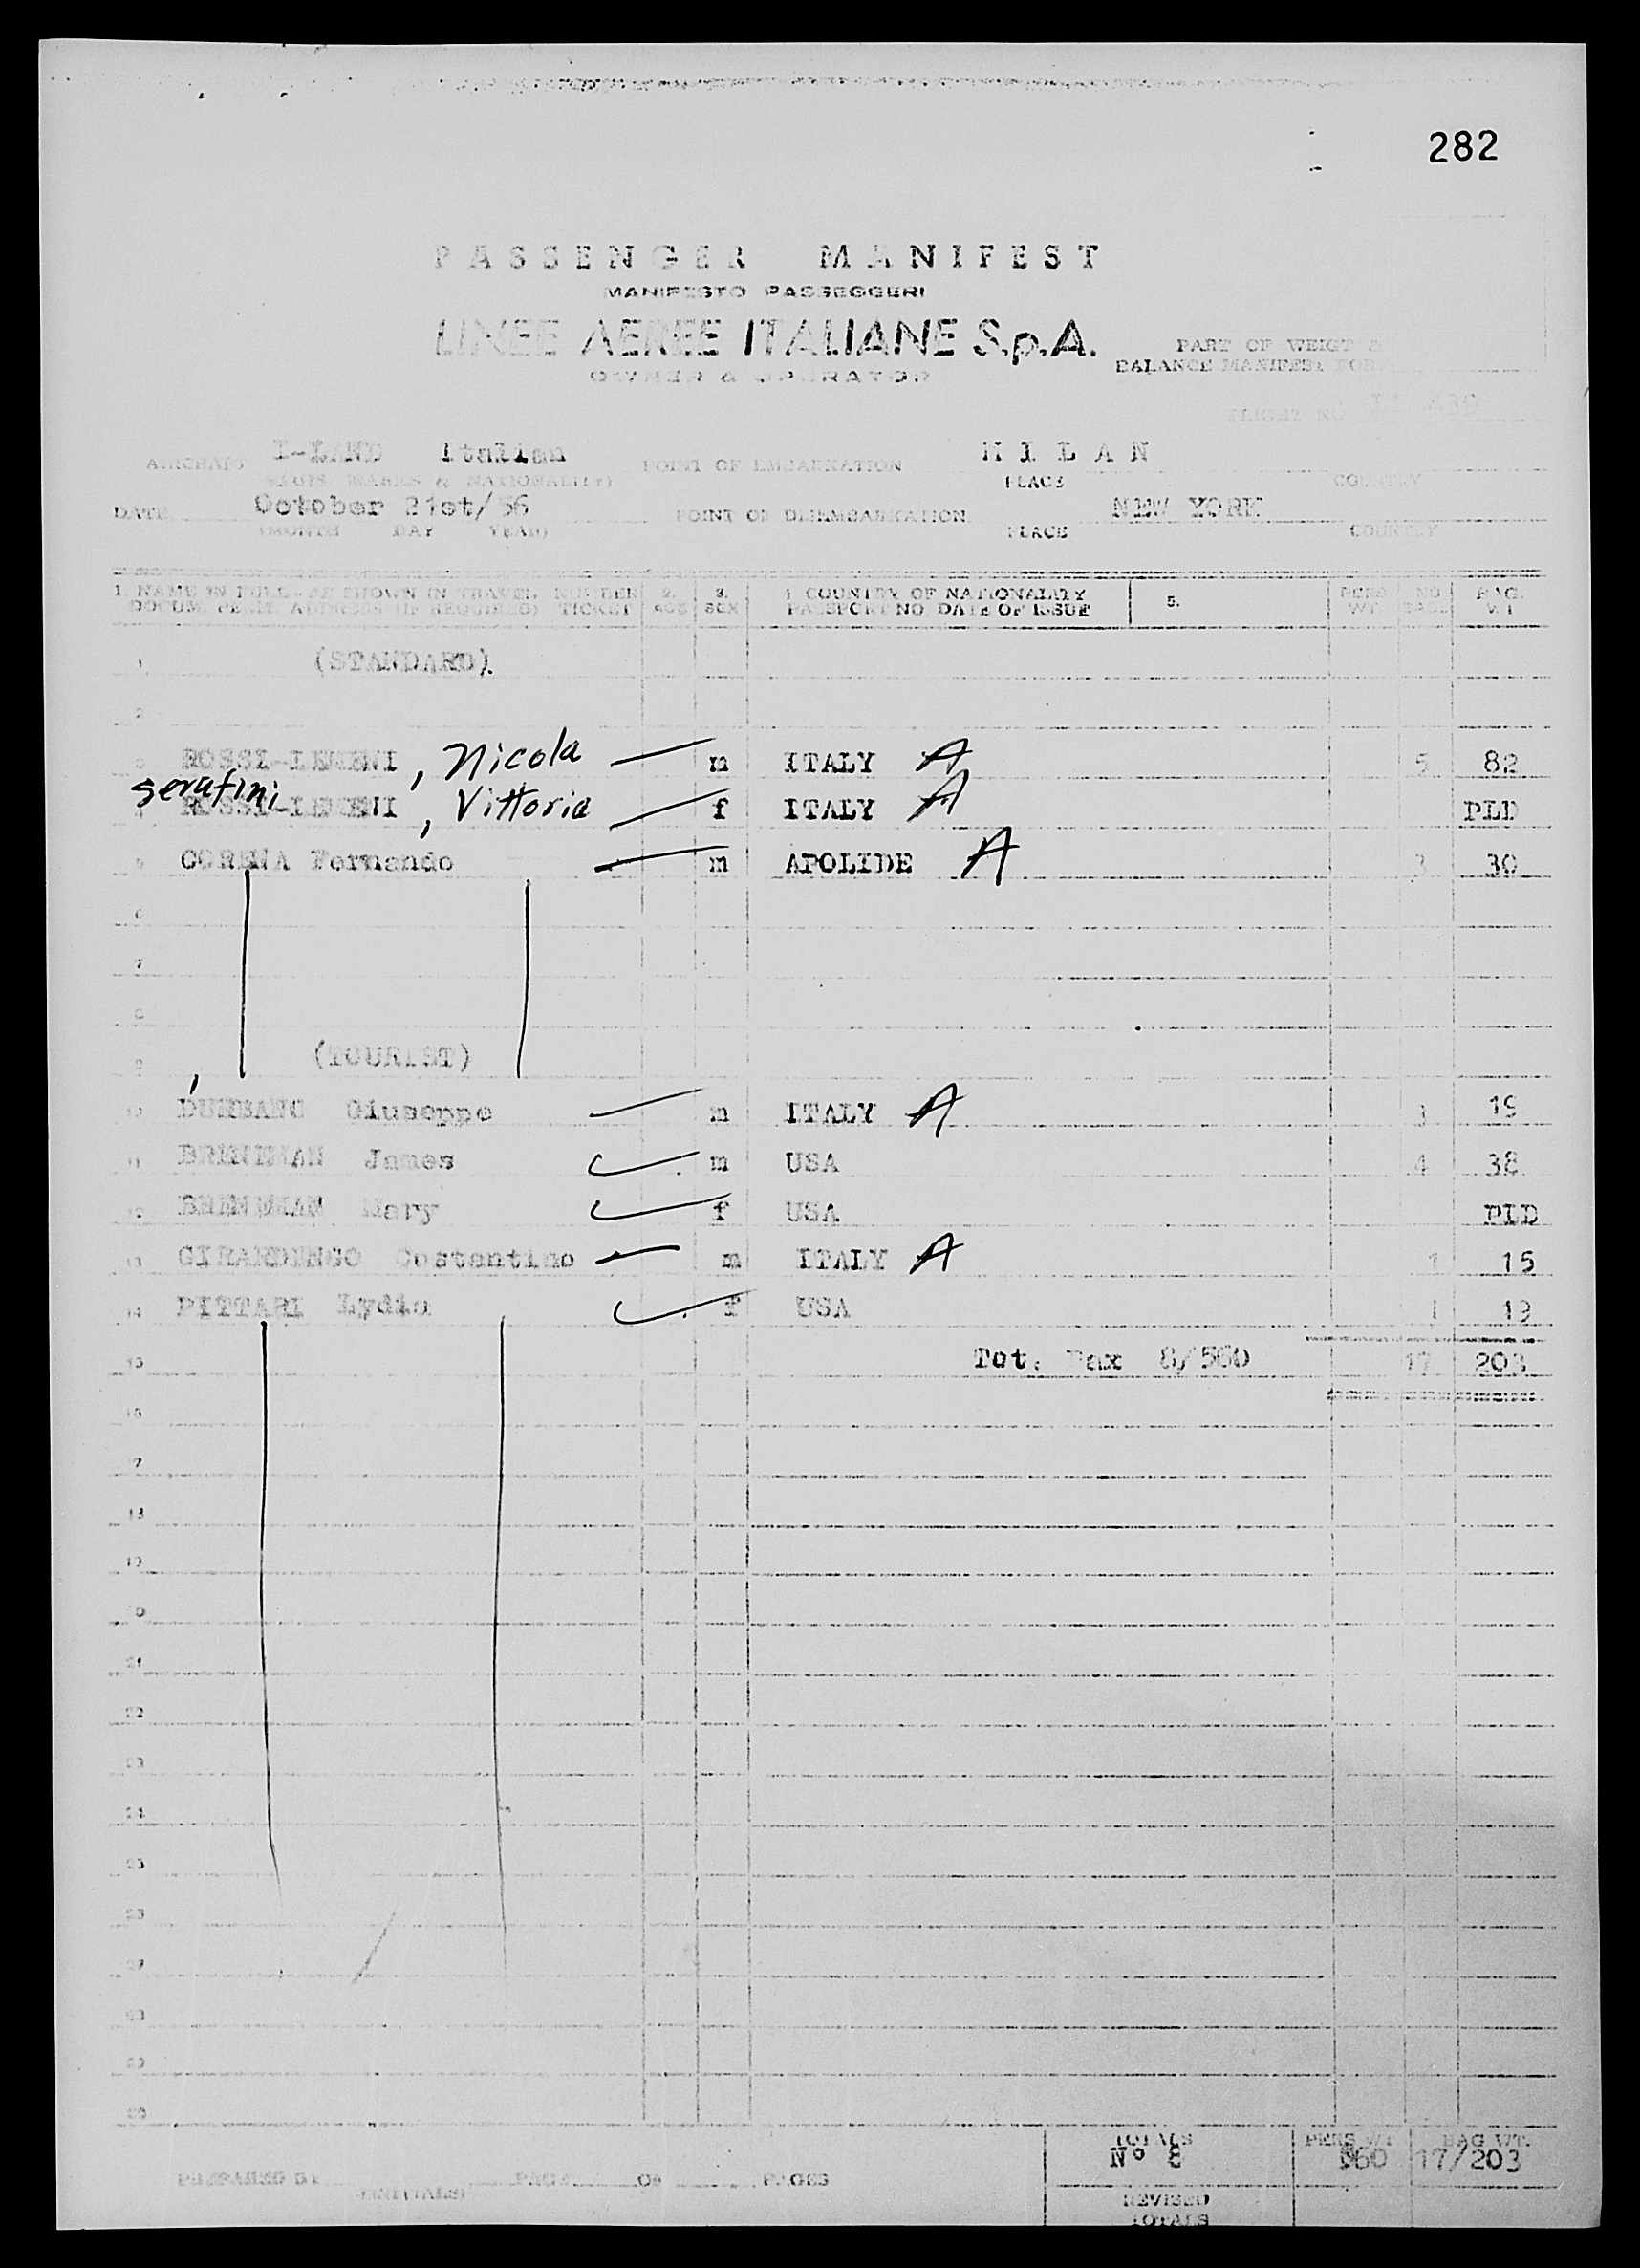 282
PASSENGER MANIFEST
MANIFESTO PASSEGGERI
LINEE AEREE ITALIANE S.p.A.
OWNER & OPERATOR
PART OF WEIGT &
BALANCE MANIFEST FOR
FLIGHT NO
AIRCRAFT I-LAND Italian POINT OF EMBARKATION MILAN
REGIS MARKS & NATIONALITY) PLACE COUNTRY
DATE October 21st/56 POINT OF DISEMBARKATION NEW YORK
(MONTH DAY YEAR) PLACE COUNTRY
1. NAME IN FULL SHOWN IN TRAVEL NUMBER 2. 3. COUNTRY OF NATIONALITY 5. PERS NO BAG.
DOCUM. PERM. ADDRESS (IF REQUIRED) TICKET AGE SEX PASSPORT NO DATE OF ISSUE WT. BAG. WT
1 (STANDARD)
2
3 ROSSI-LEMENI, Nicola m ITALY A 5 82
serafini
4 ROSSI-LEMENI, Vittoria f ITALY A PLD
5 CORENA Fernando m APOLIDE A 3 30
6
7
8
9 (TOURIST)
10 Giuseppe m ITALY A 3 19
11 BRENNMAN James m USA 4 38
12 BRENNMAN Mary f USA PLD
13 GIRARDENGO Costantino m ITALY A 1 15
14 PITTARI Lydia f USA 1 19
15 Tot. Pax 8/560 17 203
16
17
18
19
20
21
22
23
24
25
26
27
28
29
30
TOTALS PERS WT BAG WT.
Nº 8 560 17/203
PREPARED BY PAGE OF PAGES
(INITIALS)
REVISED
TOTALS